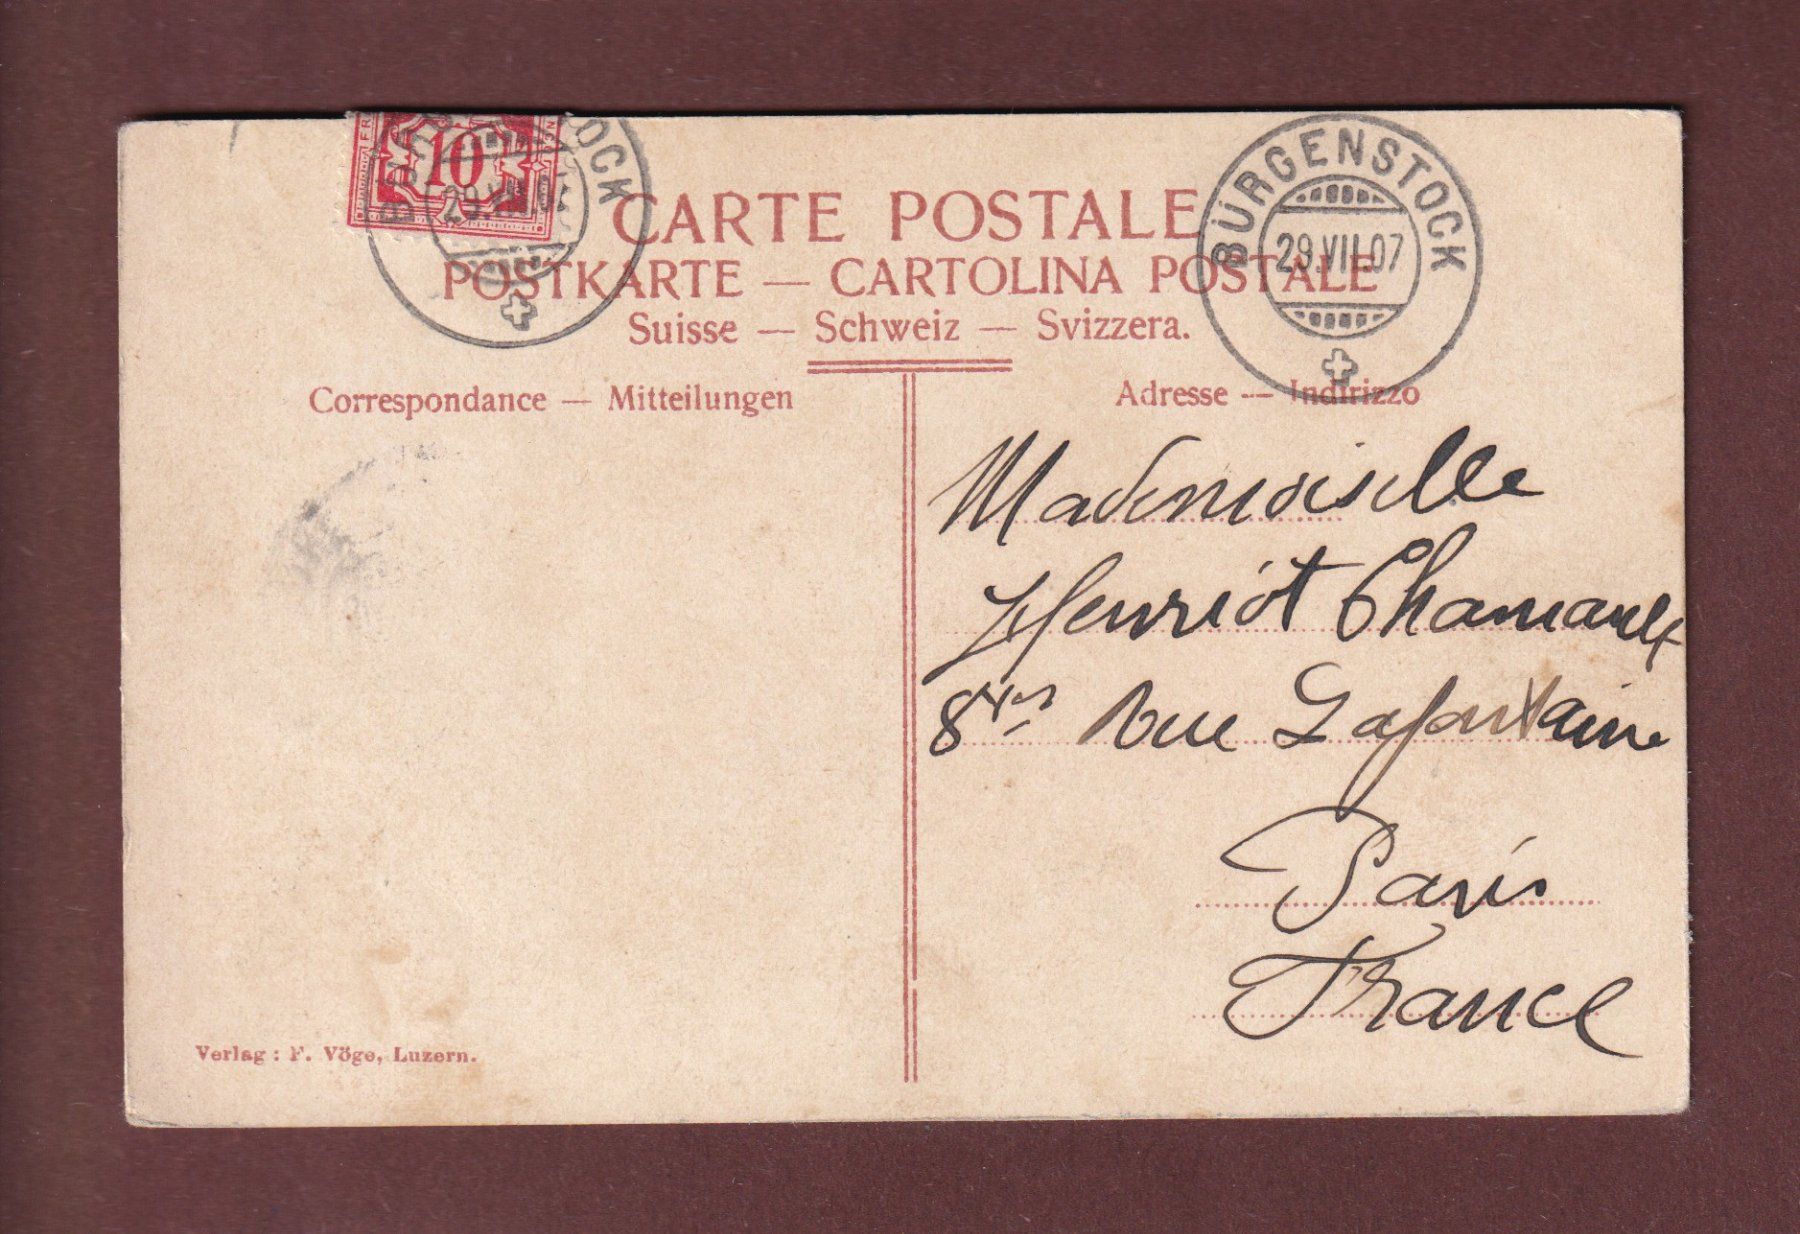 FR
10
BÜRGENSTOCK
29.VII.07
CARTE POSTALE
BÜRGENSTOCK
29.VII.07
POSTKARTE — CARTOLINA POSTALE
Suisse — Schweiz — Svizzera.
Correspondance — Mitteilungen
Adresse — Indirizzo
Mademoiselle
Henriot Chamault
8 Rue Lafontaine
Paris
France
Verlag : F. Vöge, Luzern.